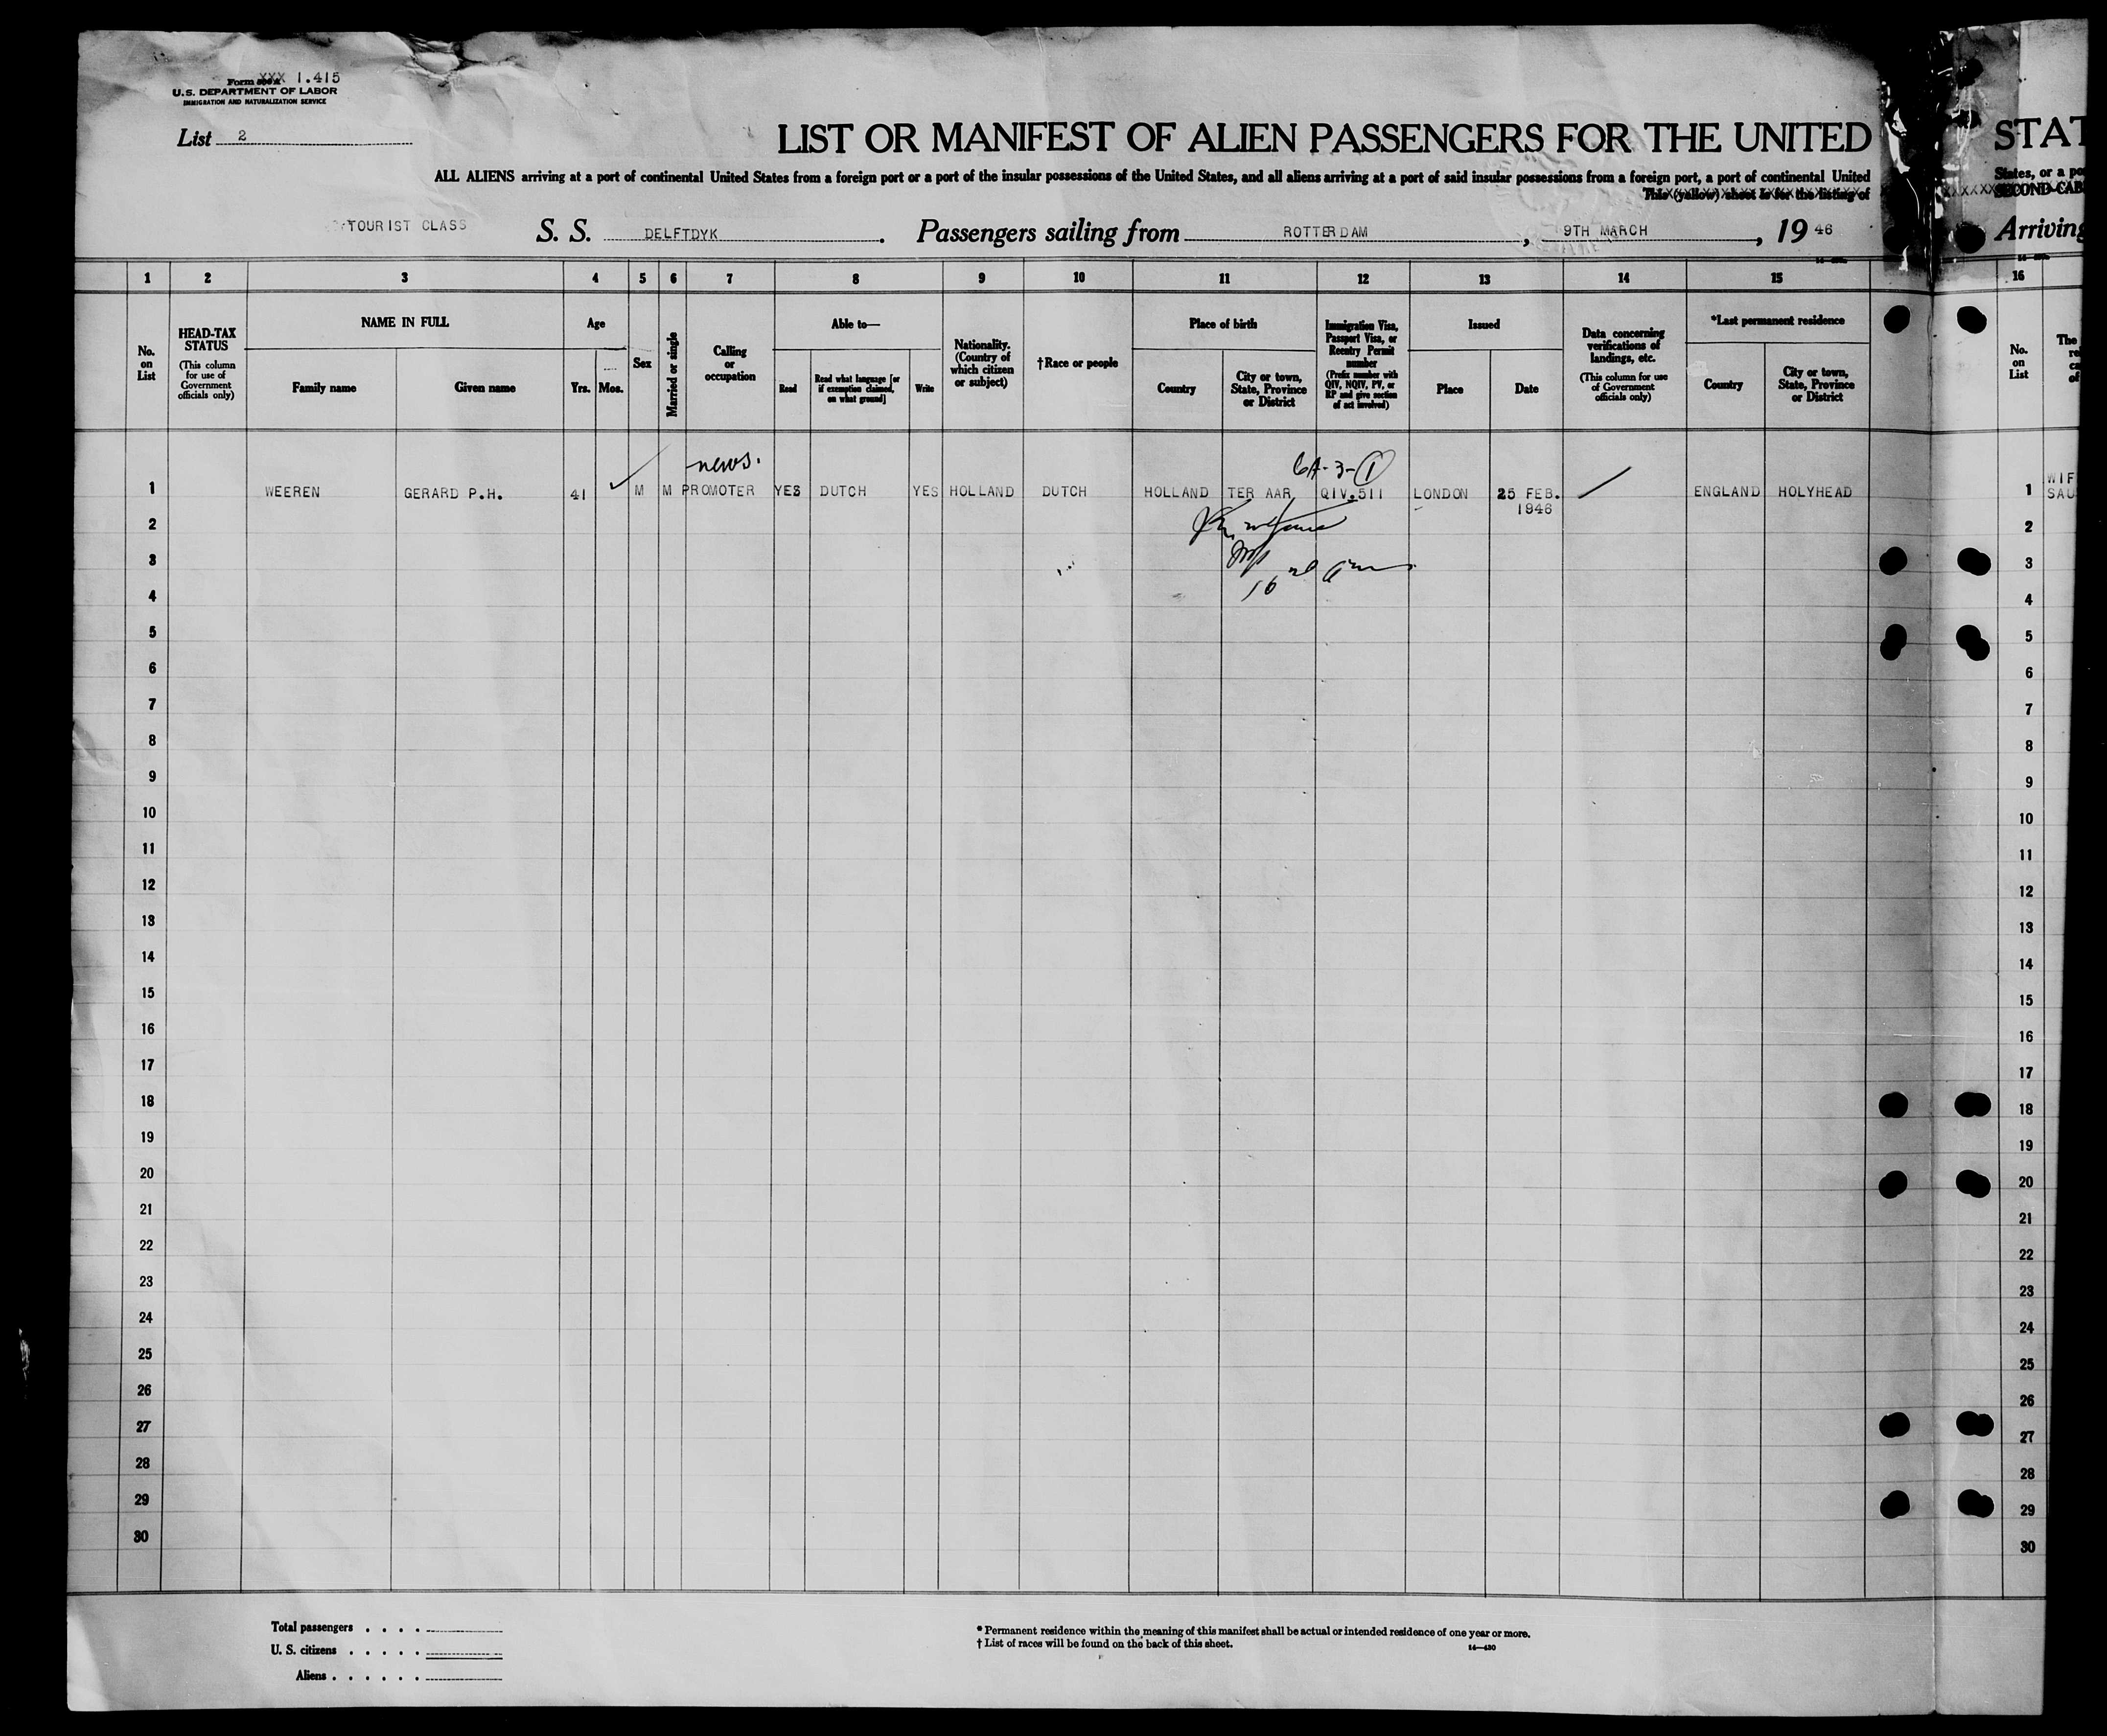 Form XXX 1.415
U.S. DEPARTMENT OF LABOR
IMMIGRATION AND NATURALIZATION SERVICE
List 2
LIST OR MANIFEST OF ALIEN PASSENGERS FOR THE UNITED
STAT
ALL ALIENS arriving at a port of continental United States from a foreign port or a port of the insular possessions of the United States, and all aliens arriving at a port of said insular possessions from a foreign port, a port of continental United
States, or a po
This (yellow) sheet is for the listing of
SECOND-CAB
TOURIST CLASS S. S. DELFTDYK. Passengers sailing from ROTTERDAM, 9TH MARCH, 19 46
Arriving
1 2 3 4 5 6 7 8 9 10 11 12 13 14 15
16
No. on List
HEAD-TAX STATUS (This column for use of Government officials only)
NAME IN FULL
Family name Given name
Age
Yrs. Mos.
Sex
Married or single
Calling or occupation
Able to—
Read
Read what language [or if exemption claimed, on what ground]
Write
Nationality. (Country of which citizen or subject)
†Race or people
Place of birth
Country
City or town, State, Province or District
Immigration Visa, Passport Visa, or Reentry Permit number (Prefix number with QIV, NQIV, PV, or RP and give section of act involved)
Issued
Place Date
Data concerning verifications of landings, etc. (This column for use of Government officials only)
*Last permanent residence
Country
City or town, State, Province or District
No. on List
The
re
ca
of
news.
6A-3-(1)
1 WEEREN GERARD P.H. 41 M M PROMOTER YES DUTCH YES HOLLAND DUTCH HOLLAND TER AAR QIV.511 LONDON 25 FEB. ENGLAND HOLYHEAD
1946
1 WIF
SAU
2 2
3 3
4 4
5 5
6 6
7 7
8 8
9 9
10 10
11 11
12 12
13 13
14 14
15 15
16 16
17 17
18 18
19 19
20 20
21 21
22 22
23 23
24 24
25 25
26 26
27 27
28 28
29 29
30 30
Total passengers . . . .
U. S. citizens . . . . .
Aliens . . . . . .
* Permanent residence within the meaning of this manifest shall be actual or intended residence of one year or more.
† List of races will be found on the back of this sheet.
14—430